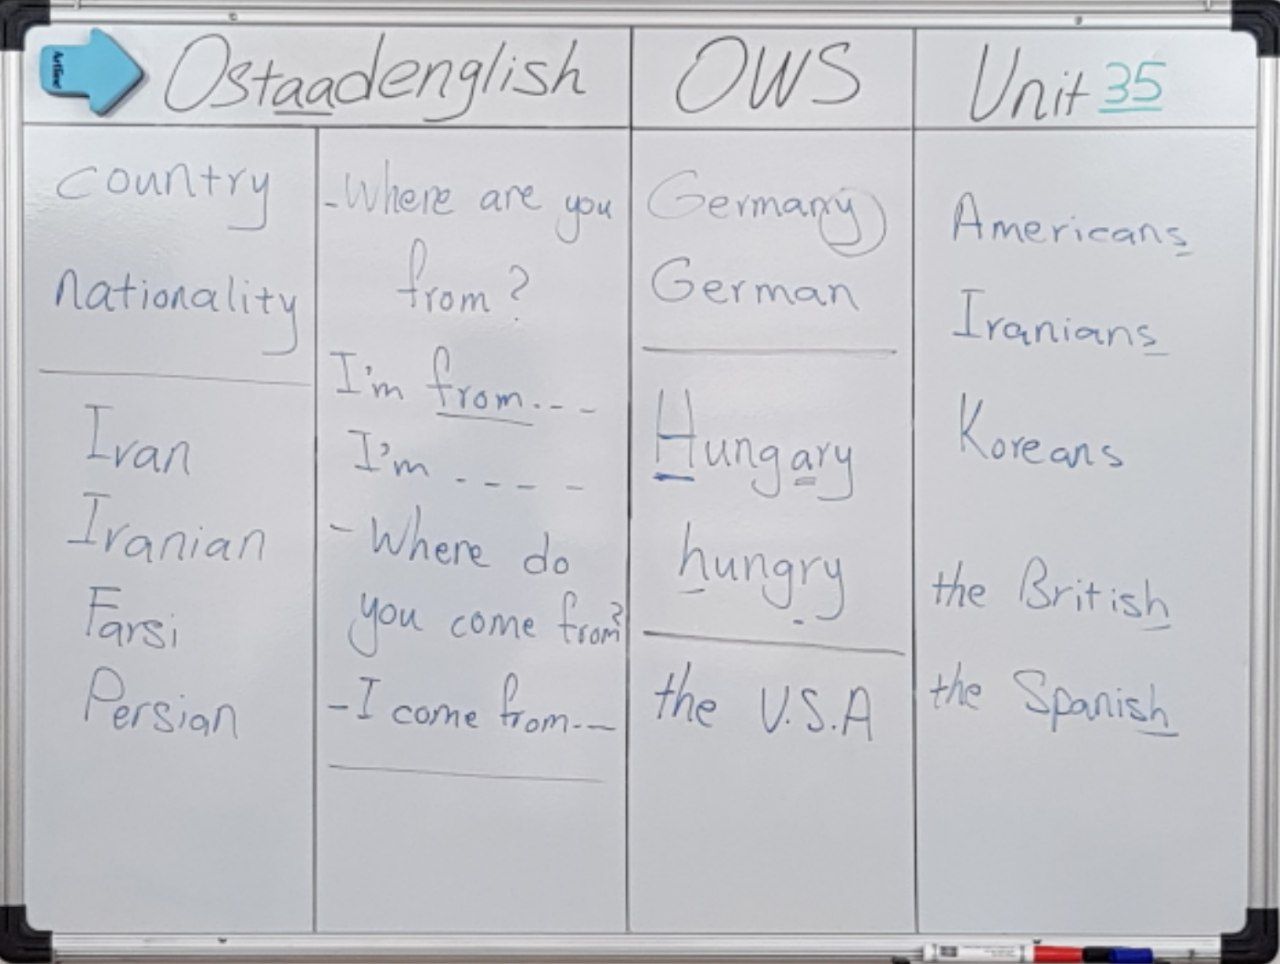 Artline
Ostaadenglish
OWS
Unit 35
country
nationality
Iran
Iranian
Farsi
Persian
-Where are you
from?
I'm from---
I'm ----
-Where do
you come from?
-I come from---
Germany
German
Hungary
hungry
the U.S.A
Americans
Iranians
Koreans
the British
the Spanish